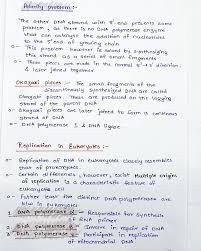 Polarity problem :-
The other DNA strand with 5'-end presents some
problem, as there is no DNA polymerase enzyme
that can catalyse the addition of nucleotides
to the 5' end of growing chain
o- This problem however is solved by synthesizing
this strand as a series of small fragments
o- These pieces are made in the normal 5'→3' direction
& later joined together
Okazaki pieces :- The small fragments of the
discontinuously synthesized DNA are called
Okazaki pieces. These are produced on the lagging
strand of the parent DNA
o- Okazaki pieces are later joined to form a continuous
strand of DNA
o- DNA polymerase I & DNA ligase
Replication in Eukaryotes :-
o- Replication of DNA in eukaryotes closely resembles
that of prokaryotes
o- Certain differences, however, exist Multiple origins
of replication is a characteristic feature of
eukaryotic cell
o- Further least five distinct DNA polymerase are
in Eukaryotes
1 DNA polymerase α - Responsible for synthesis
of RNA primer
2 DNA polymerase β - Involve in repair of DNA
3 DNA polymerase - Participates in replication
of mitochondrial DNA.